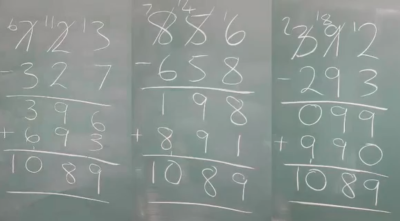 6 11 1
7 2 3
- 3 2 7
3 9 6
+ 6 9 3
10 8 9
7 14 1
8 5 6
- 6 5 8
1 9 8
+ 8 9 1
10 8 9
2 18 1
3 9 2
- 2 9 3
0 9 9
+ 9 9 0
10 8 9